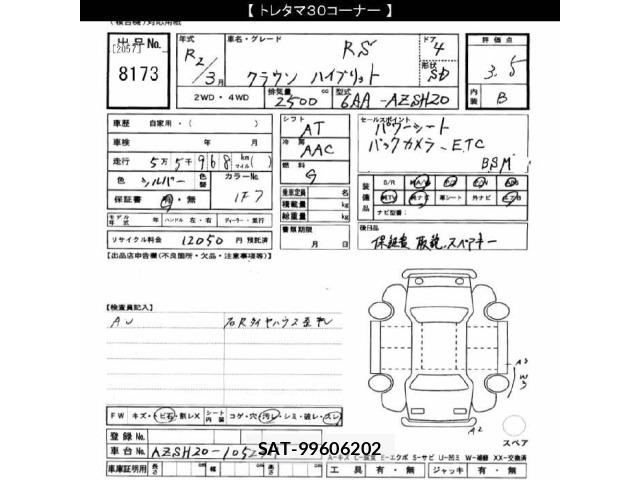 【 トレタマ30コーナー 】
出品No.
[2057]
8173
年式 R2/3月
車名・グレード RS
クラウン ハイブリット
ドア 4
形状 SD
2WD・4WD
排気量 2500 cc
型式 6AA-AZSH20
評価点 3.5
内装 B
車歴 自家用・( )
車検 年 月
走行 5万5千968km マイル( )
色 シルバー 色替 カラーNo. 1F7
保証書 有・無
モデル年式 年 ハンドル 左・右 ディーラー・並行
リサイクル料金 12050 円 預託済
シフト AT
冷房 AAC
燃料 G
乗車定員 名
積載量 kg
総重量 kg
書類期限 月 日
セールスポイント
パワーシート
バックカメラ、ETC
BSM
装備品 S/R
革シート 外ナビ
ナビ型番:
後日品
保証書 取説 スペアキー
【出品店申告欄(不良箇所・欠品・注意事項等)】
【検査員記入】
AU
右Rタイヤハウス
A2
W3
A2
スペア
FW キズ・ヒ石・割レX シート内装 コゲ・穴・汚レ・シミ・破レ・スレ
登録No.
車台No. AZSH20-105
SAT-99606202
A-キズ E-エクボ S-サビ U-凹ミ W-補修 XX-交換済
車庫証明用 長さ cm 幅 cm 高さ cm
工具 有・無 ジャッキ 有・無